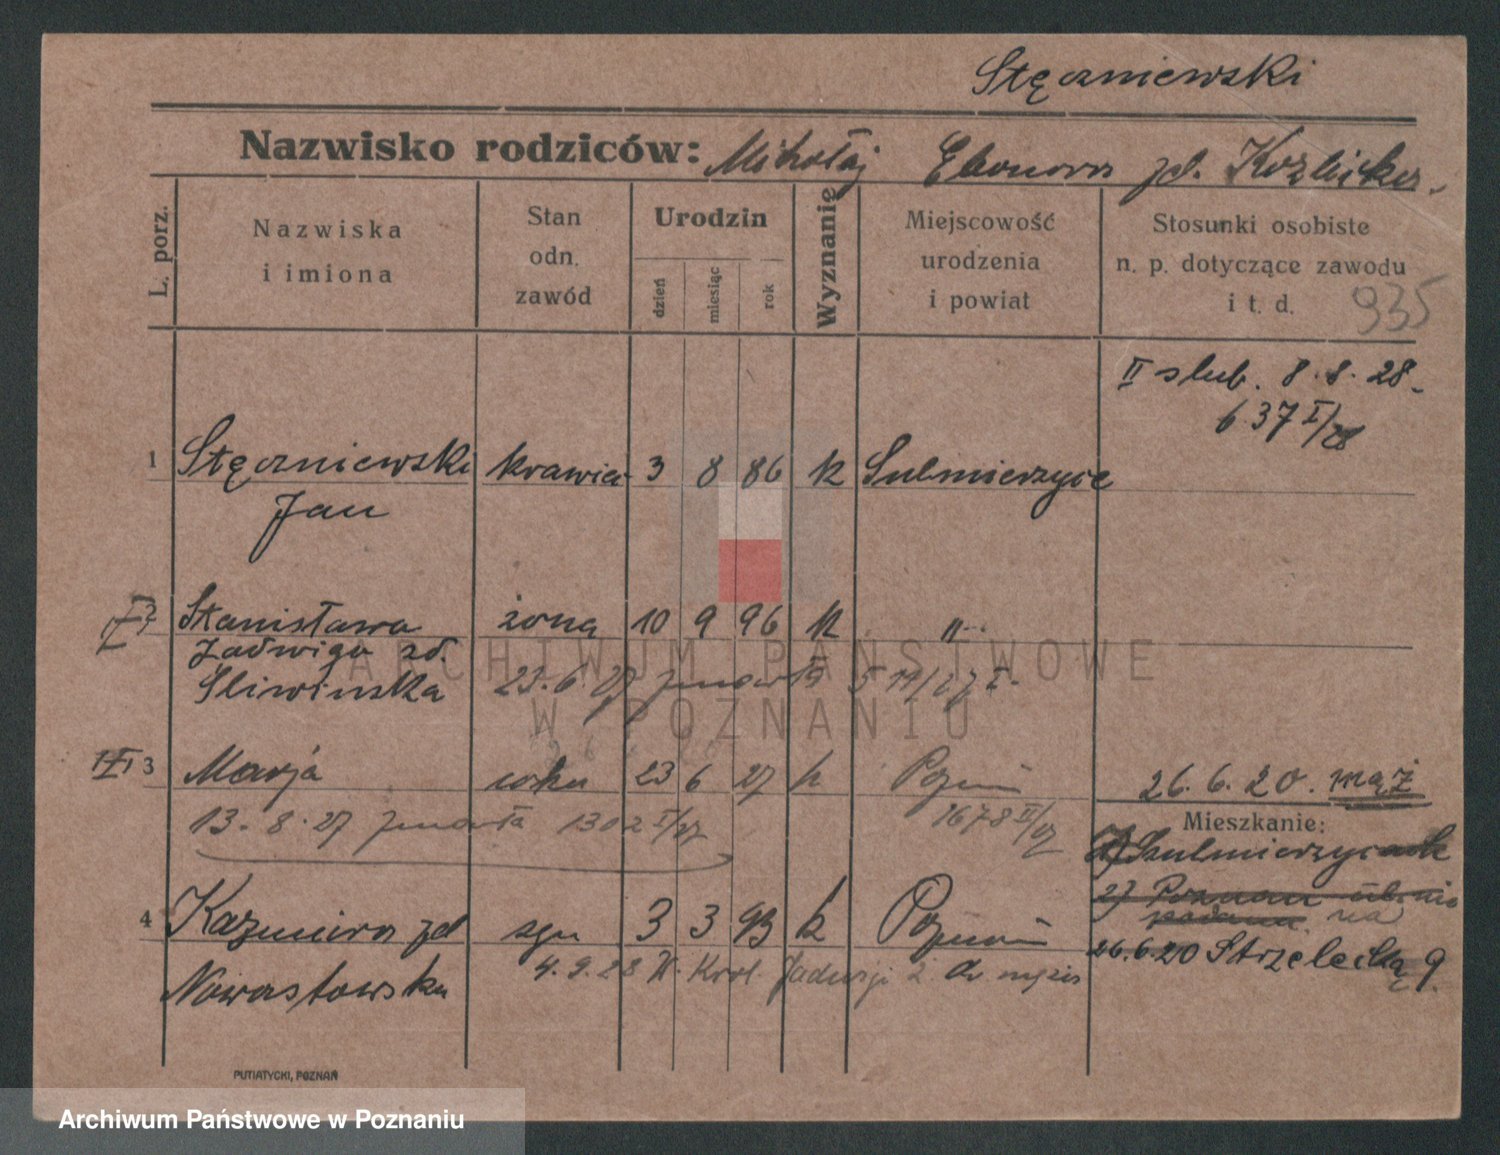 Stęczniewski
Nazwisko rodziców: Mikołaj Eleonora zd. Kozlicka.
L. porz.
Nazwiska
i imiona
Stan
odn.
zawód
Urodzin
dzień
miesiąc
rok
Wyznanie
Miejscowość
urodzenia
i powiat
Stosunki osobiste
n. p. dotyczące zawodu
i t. d.
935
II slub. 8.8.28.
637 I/28
1 Stęczniewski krawiec 3 8 86 k Sulmierzyce
Jan
2 Stanisława żona 10 9 96 k "
Jadwiga zd.
Sliwinska 23.6.27 zmarła 511/27 I.
3 Marja córka 23 6 27 k Poznań
13.8.27 zmarła 1302 I/27 1678 II/27
26.6.20. mąż
Mieszkanie:
1) Sulmierzycach
2) Poznan
podana na
26.6.20 Strzelecką 9.
4 Kazimiera zd 3 3 93 k Poznań
Nowastowska 4.9.28 Król. Jadwigi 2 do męża
PUTIATYCKI, POZNAŃ
ARCHIWUM PAŃSTWOWE
W POZNANIU
Archiwum Państwowe w Poznaniu